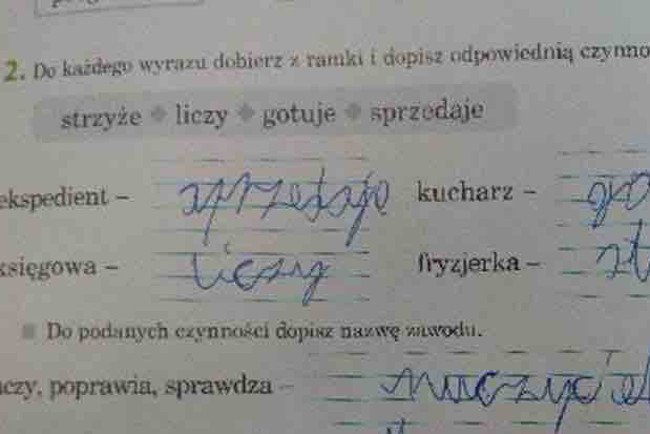 2. Do każdego wyrazu dobierz z ramki i dopisz odpowiednią czynno
strzyże ◆ liczy ◆ gotuje ◆ sprzedaje
ekspedient – sprzedaje kucharz – go
księgowa – liczy fryzjerka – st
Do podanych czynności dopisz nazwę zawodu.
czy, poprawia, sprawdza – nauczyciel